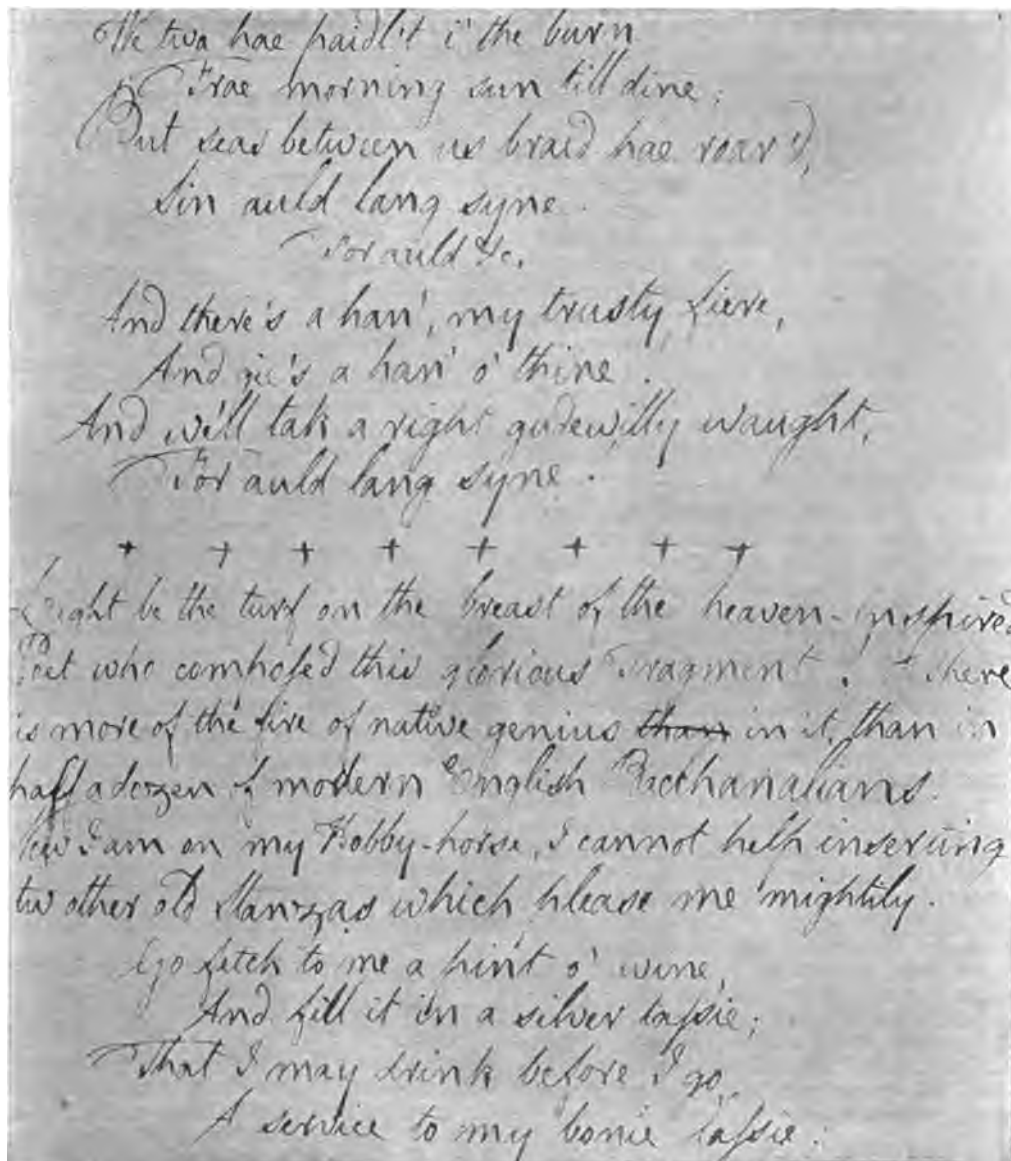 We twa hae paidl't i' the burn
Frae morning sun till dine;
But seas between us braid hae roar'd,
Sin auld lang syne.
For auld &c.
And there's a han', my trusty fiere,
And gie's a han' o' thine.
And we'll tak a right gudewilly waught,
For auld lang syne.
+ + + + + + + +
Light be the turf on the breast of the heaven-inspired
Poet who composed this glorious Fragment! There
is more of the fire of native genius than in it, than in
half a dozen of modern English Bacchanalians.
Now I am on my Hobby-horse, I cannot help inserting
two other old Stanzas which please me mightily.
Go fetch to me a pint o' wine,
And fill it in a silver tassie;
That I may drink before I go,
A service to my bonie lassie: